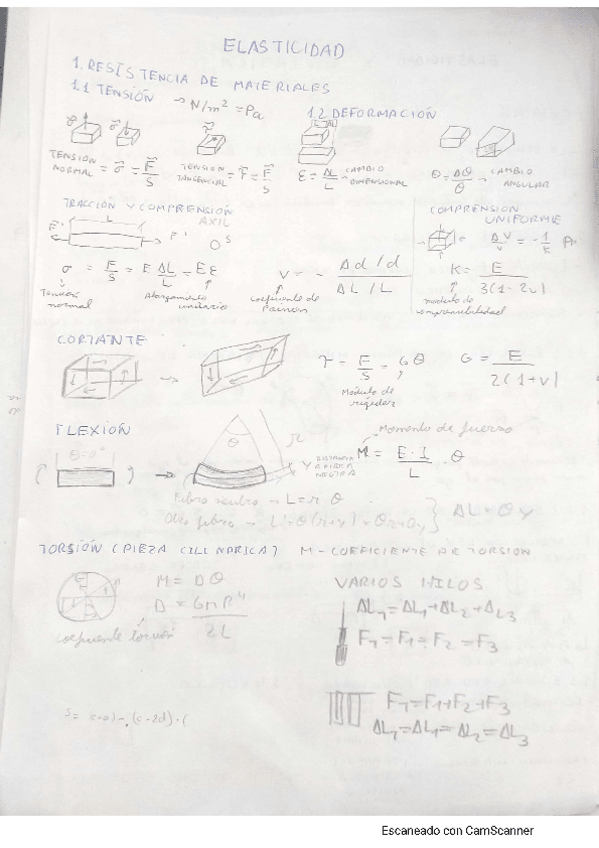 ELASTICIDAD
1. RESISTENCIA DE MATERIALES
1.1 TENSIÓN → N/m² = Pa
1.2 DEFORMACIÓN
TENSION NORMAL = σ⃗ = F⃗/S
TENSION TANGENCIAL = τ⃗ = F⃗/S
ε = ΔL/L → CAMBIO DIMENSIONAL
θ = Δθ/θ → CAMBIO ANGULAR
TRACCIÓN Y COMPRENSIÓN AXIL
L
F' F' S
σ = F/S = E ΔL/L = Eε
Tensión normal
Alargamiento unitario
ν = - Δd/d / ΔL/L
coeficiente de Poisson
COMPRENSION UNIFORME
ΔV/V = -1/K
K = E / 3(1-2ν)
modulo de comprensibilidad
CORTANTE
τ - F/S = Gθ
Módulo de rigidez
G = E / 2(1+ν)
FLEXIÓN
θ=0°
θ
r
Y DISTANCIA A FIBRA NEUTRA
Momento de fuerza
M = E·I/L · θ
Fibra neutra → L = r θ
Otra fibra → L' = θ(r+y) = θr+θy } ΔL = θy
TORSIÓN (PIEZA CILINDRICA) M - COEFICIENTE DE TORSION
M = Dθ
D = GπR⁴ / 2L
coeficiente torsión
VARIOS HILOS
ΔL₇ = ΔL₁+ΔL₂+ΔL₃
F₇ = F₁ = F₂ = F₃
F₇ = F₁+F₂+F₃
ΔL₇ = ΔL₁ = ΔL₂ = ΔL₃
Escaneado con CamScanner